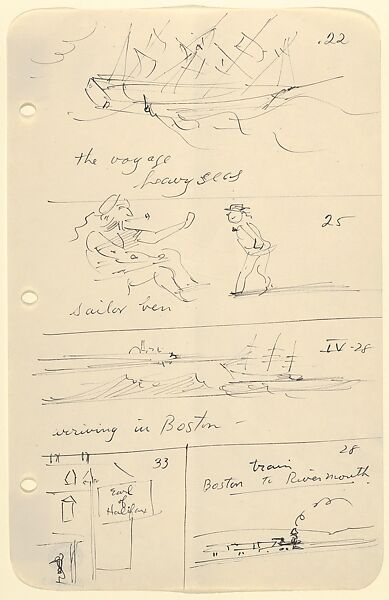 .22
the voyage
heavy seas
25
sailor ben
IV-28
arriving in Boston -
33
Earl
of
Halifax
28
train
Boston to Rivermouth.